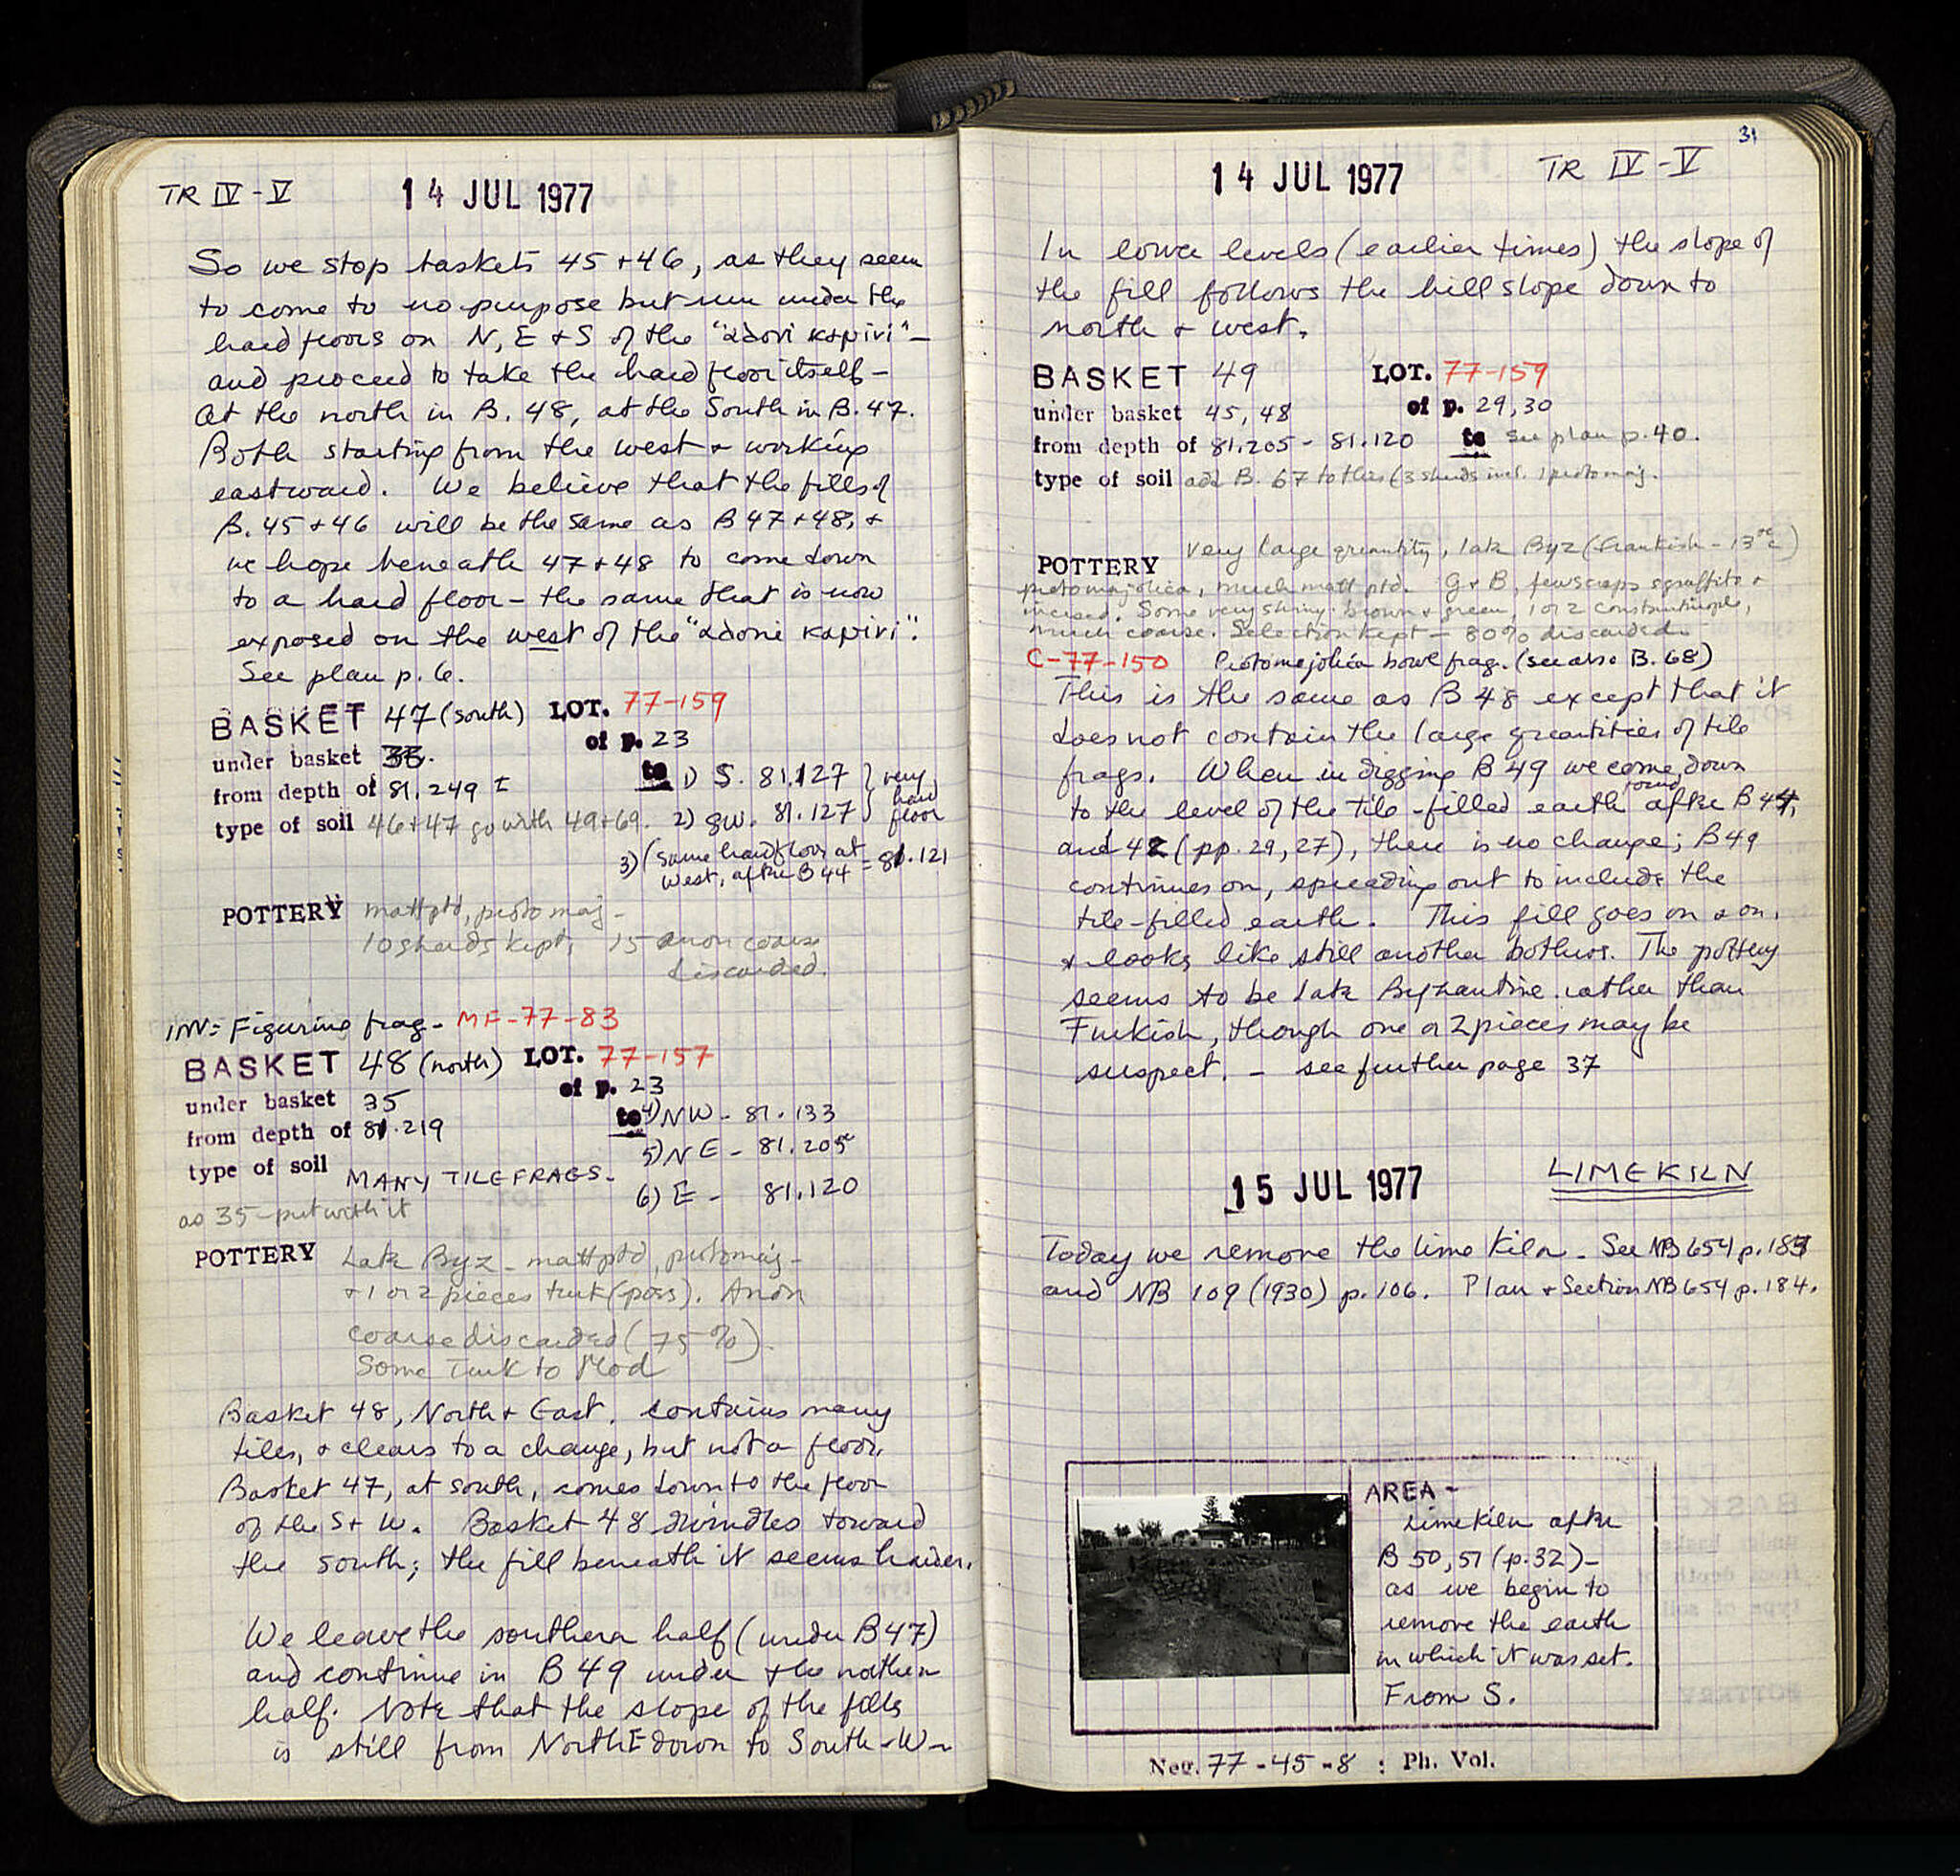 TR IV-V 14 JUL 1977
So we stop baskets 45+46, as they seem
to come to no purpose but run under the
hard floors on N, E + S of the "
and proceed to take the hard floor itself -
At the north in B. 48, at the South in B. 47.
Both starting from the west + working
eastward. We believe that the fills of
B. 45+46 will be the same as B 47+48, +
we hope beneath 47+48 to come down
to a hard floor - the same that is now
exposed on the west of the "
See plan p. 6.
BASKET 47 (south) LOT. 77-159
under basket of p. 23
from depth of 81.249 ± to 1) S. 81.127 } very
type of soil 46+47 go with 49+69. 2) SW. 81.127 } hard floor
3) (same hard floor at
West, after B 44 - 81.121
POTTERY matt ptd, proto maj -
10 sherds kept, 15 anon coarse
discarded.
INV: Figurine frag. MF-77-83
BASKET 48 (north) LOT. 77-157
under basket 35 of p. 23
from depth of 81.219 to 4) NW - 81.133
type of soil MANY TILE FRAGS. 5) NE - 81.205
as 35 - put with it 6) E - 81.120
POTTERY Late Byz - matt ptd, protomaj -
+ 1 or 2 pieces turk (poss). Anon
coarse discarded (75%).
Some Turk to Mod
Basket 48, North + East, contains many
tiles, + clears to a change, but not a floor.
Basket 47, at south, comes down to the floor
of the S + W. Basket 48 dwindles toward
the south; the fill beneath it seems harder.
We leave the southern half (under B47)
and continue in B 49 under the northern
half. Note that the slope of the fills
is still from North E down to South-W -
31
14 JUL 1977 TR IV-V
In lower levels (earlier times) the slope of
the fill follows the hill slope down to
north + west.
BASKET 49 LOT. 77-159
under basket 45, 48 of p. 29, 30
from depth of 81.205 - 81.120 to see plan p. 40.
type of soil add B. 67 to this (3 sherds incl. 1 protomaj.
POTTERY very large quantity, late Byz (Frankish - 13th c)
protomajolica, much matt ptd. G + B, few scraps sgraffito +
incised. Some very shiny brown + green, 1 or 2 constantinople,
much coarse. Selection kept - 80% discarded.
C-77-150 Protomajolica bowl frag. (see also B. 68)
This is the same as B 48 except that it
does not contain the large quantities of tile
frags. When in digging B 49 we come down
to the level of the tile-filled earth found after B 44,
and 42 (pp. 29, 27), there is no change; B 49
continues on, spreading out to include the
tile-filled earth. This fill goes on + on,
+ looks like still another bothros. The pottery
seems to be late Byzantine rather than
Turkish, though one or 2 pieces may be
suspect. - see further page 37
15 JUL 1977 LIMEKILN
Today we remove the lime kiln. See NB 654 p. 183
and NB 109 (1930) p. 106. Plan + Section NB 654 p. 184.
AREA -
Limekiln after
B 50, 51 (p. 32) -
as we begin to
remove the earth
in which it was set.
From S.
Neg. 77-45-8 : Ph. Vol.